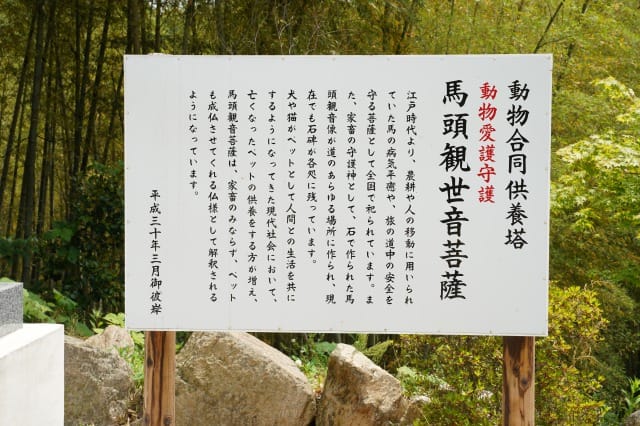 動物合同供養塔
動物愛護守護
馬頭観世音菩薩
江戸時代より、農耕や人の移動に用いられ
ていた馬の病気平癒や、旅の道中の安全を
守る菩薩として全国で祀られています。ま
た、家畜の守護神として、石で作られた馬
頭観音像が道のあらゆる場所に作られ、現
在でも石碑が各処に残っています。
犬や猫がペットとして人間との生活を共に
するようになってきた現代社会において、
亡くなったペットの供養をする方が増え、
馬頭観音菩薩は、家畜のみならず、ペット
も成仏させてくれる仏様として解釈される
ようになっています。
平成三十年三月御彼岸